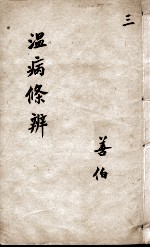 三
温病條辨
善伯